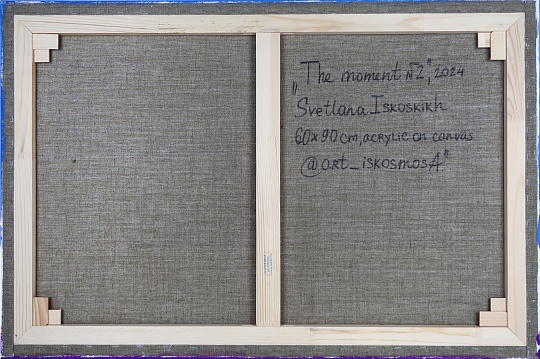 „The moment №2", 2024
Svetlana Iskoskikh
60x90 cm, acrylic on canvas
@art_iskosmosA"